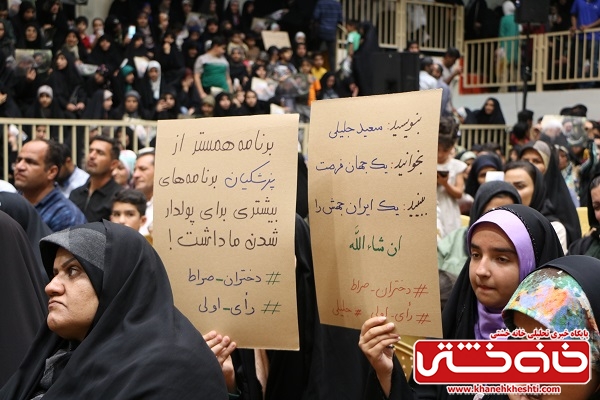 برنامه همستر از
پزشکیان برنامه‌های
بیشتری برای پولدار
شدن ما داشت!
#دختران_صراط
#رأی_اولی
بنویسید: سعید جلیلی
بخوانید: یک جهان فرصت
ببینید: یک ایران جهش را
ان شاءالله
#دختران_صراط
#رأی_اولی #جلیلی
پایگاه خبری تحلیلی خانه خشتی
خانه خشتی
www.khanehkheshti.com